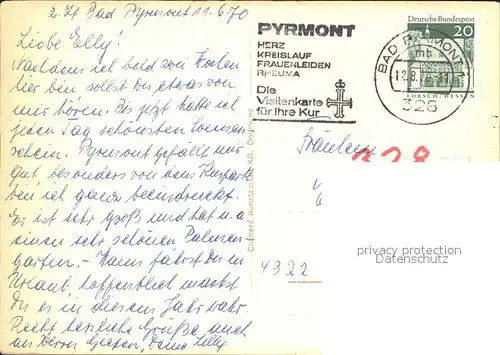 z. Zt Bad Pyrmont 11.6.70
Liebe Elly!
Nachdem ich bald zwei Wochen
hier bin, sollst Du etwas von
mir hören. Bis jetzt hatte ich
jeden Tag schönsten Sonnen-
schein. Pyrmont gefällt mir
gut besonders von dem Kurpark
bin ich ganz beeindruckt.
Er ist sehr groß und hat u. a.
einen sehr schönen Palmen-
garten. - Wann fährst Du in
Urlaub hoffentlich machst
Du es in diesem Jahr wahr.
Recht herzliche Grüße auch
an Herrn Deine Lilly
PYRMONT
HERZ
KREISLAUF
FRAUENLEIDEN
RHEUMA
Die
Visitenkarte
für Ihre Kur
BAD PYRMONT
mb
328
Deutsche Bundespost
20
LORSCH/HESSEN
Fräulein
328
4322
privacy protection
Datenschutz